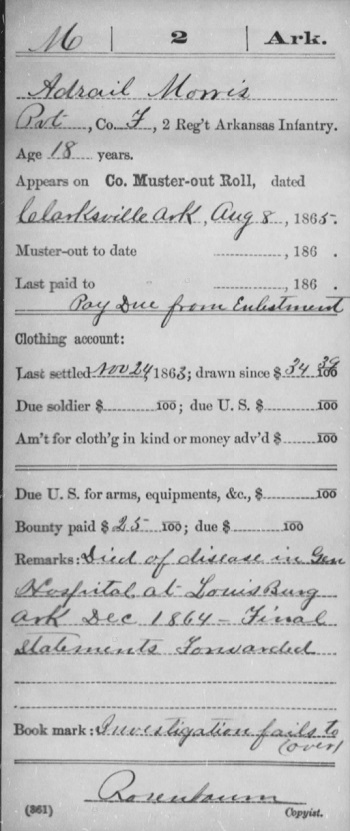 M | 2 | Ark.
Adrail Morris
Pvt, Co. F, 2 Reg't Arkansas Infantry.
Age 18 years.
Appears on Co. Muster-out Roll, dated
Clarksville Ark, Aug 8, 1865.
Muster-out to date ............, 186 .
Last paid to ............, 186 .
Pay Due from Enlistment
Clothing account:
Last settled Nov 24, 1863; drawn since $ 34 39/100
Due soldier $............ /100; due U. S. $............ /100
Am't for cloth'g in kind or money adv'd $....... /100
Due U. S. for arms, equipments, &c., $............ /100
Bounty paid $ 25 /100; due $............ /100
Remarks: Died of disease in Gen
Hospital at Louisburg
Ark Dec 1864 – Final
Statements Forwarded
Book mark: Investigation fails to
(over)
Rosenbaum
(361) Copyist.